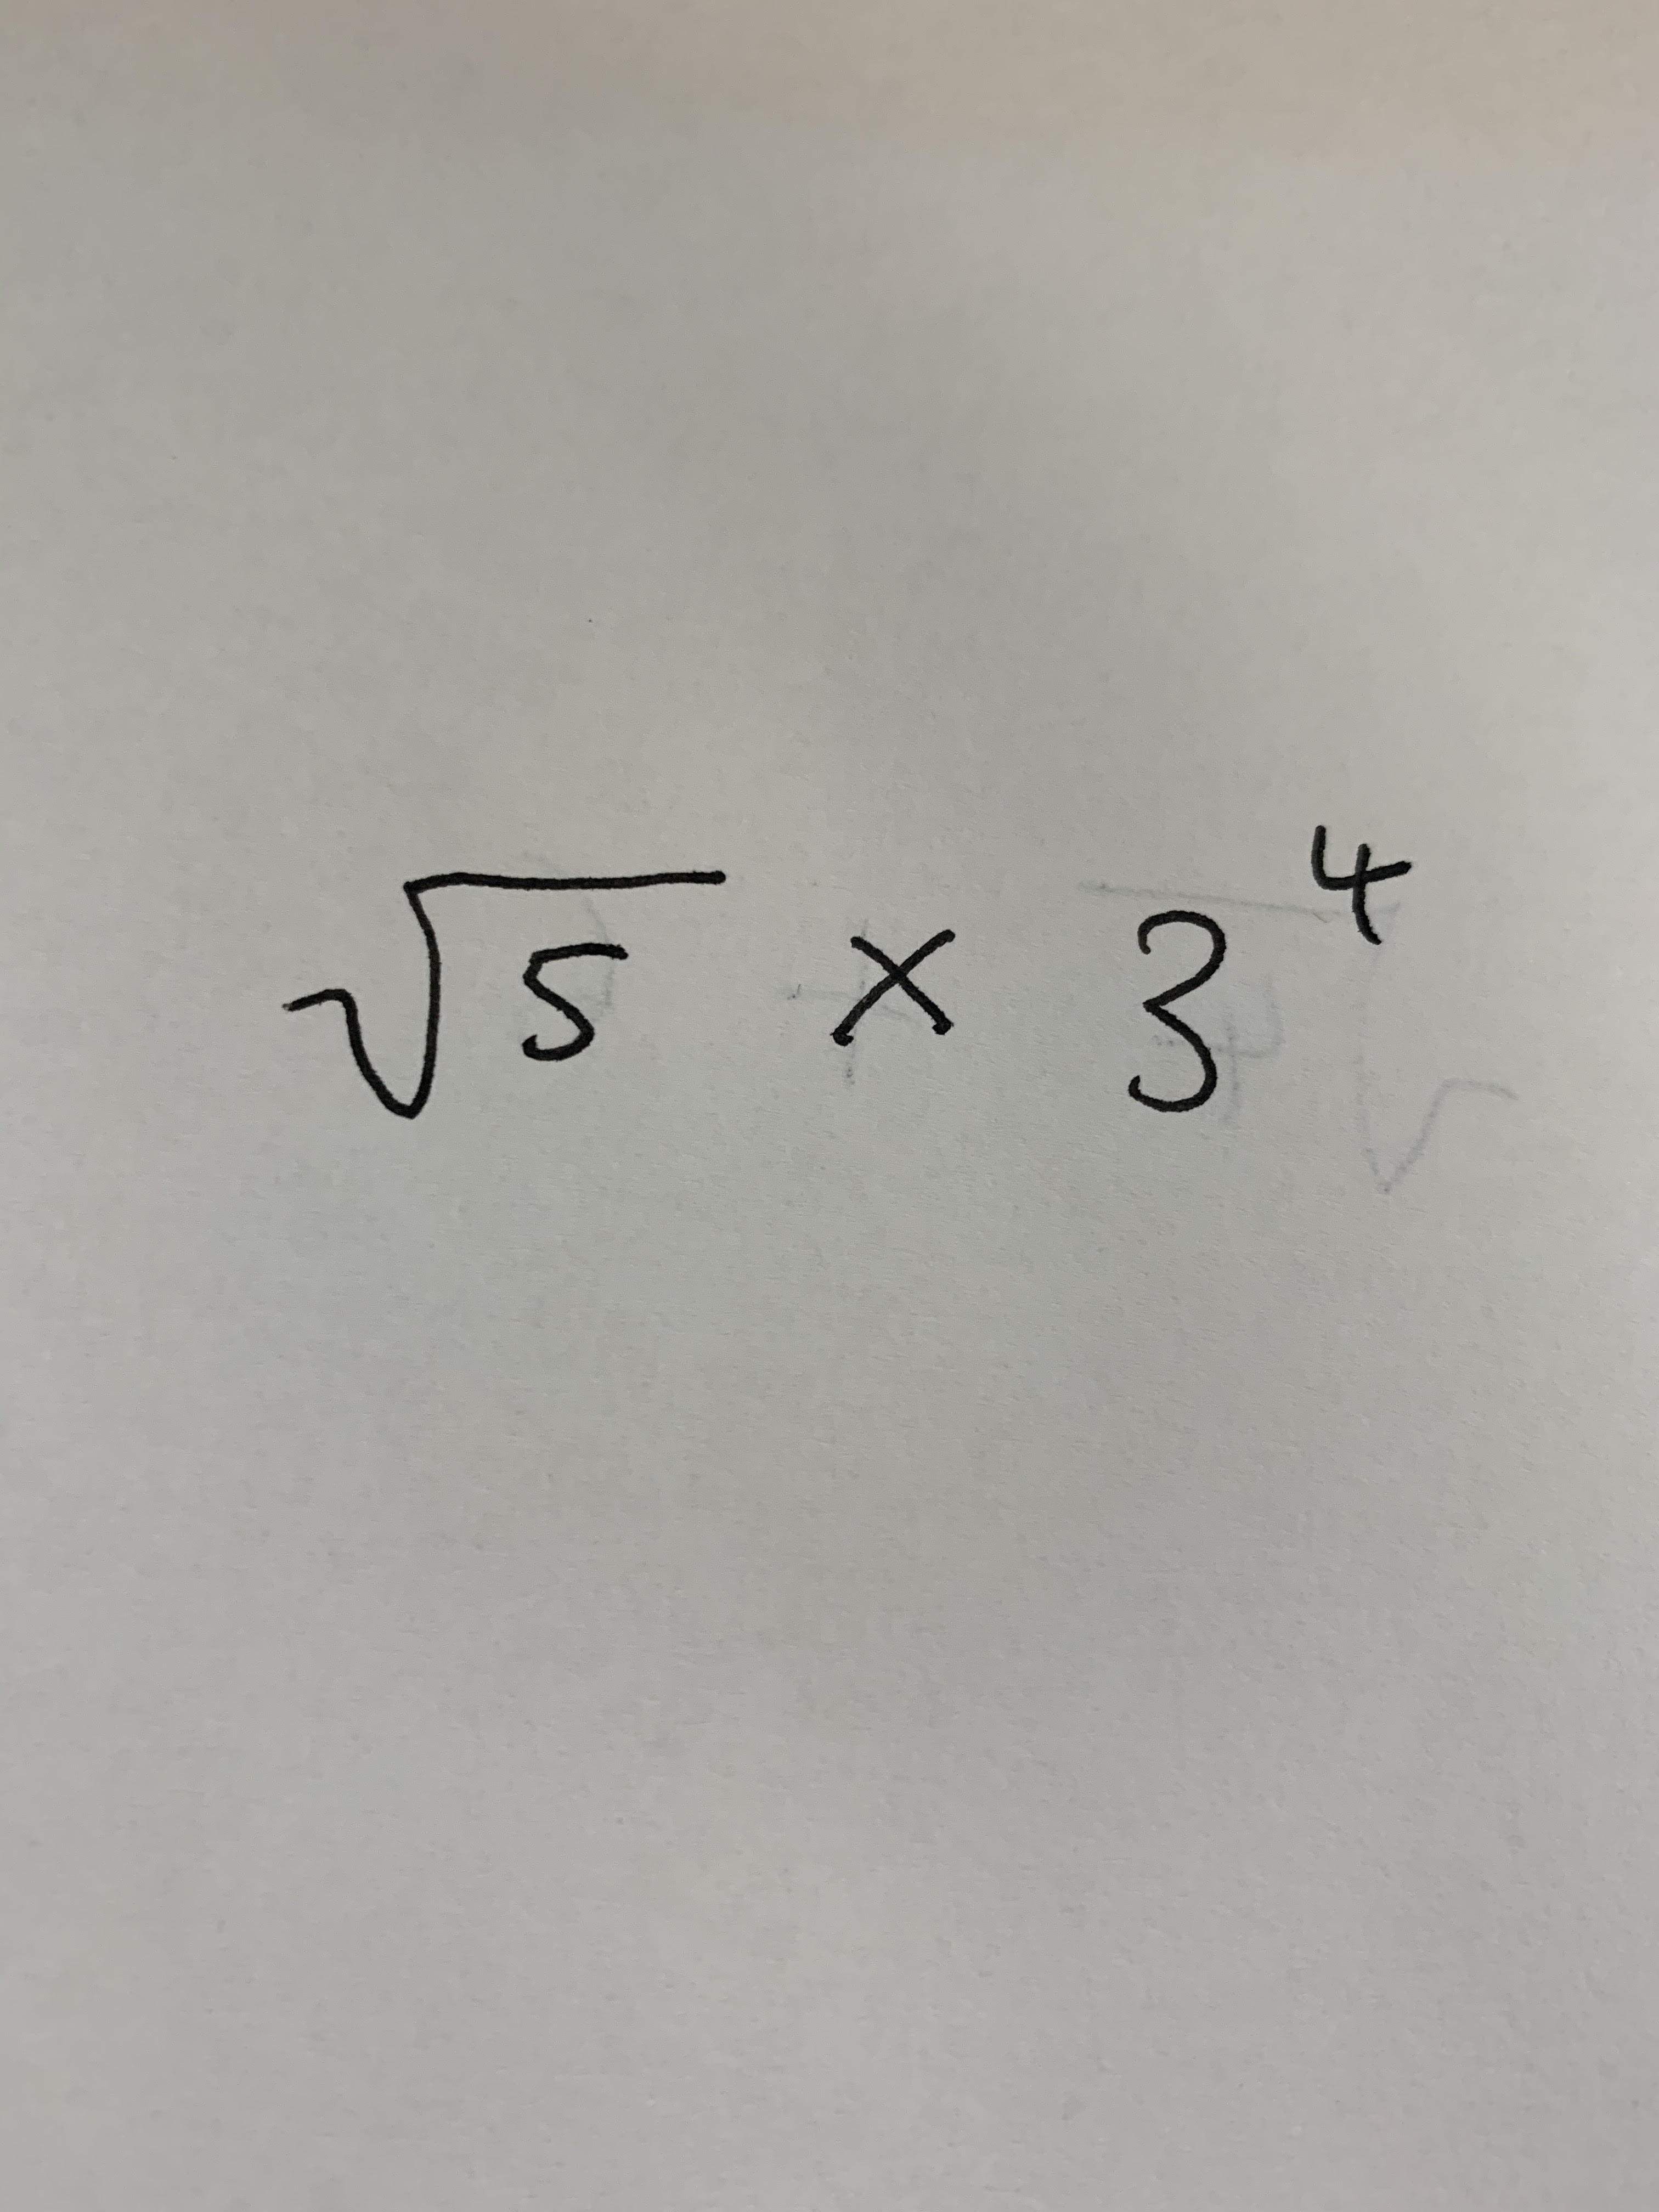 √5 × 3⁴